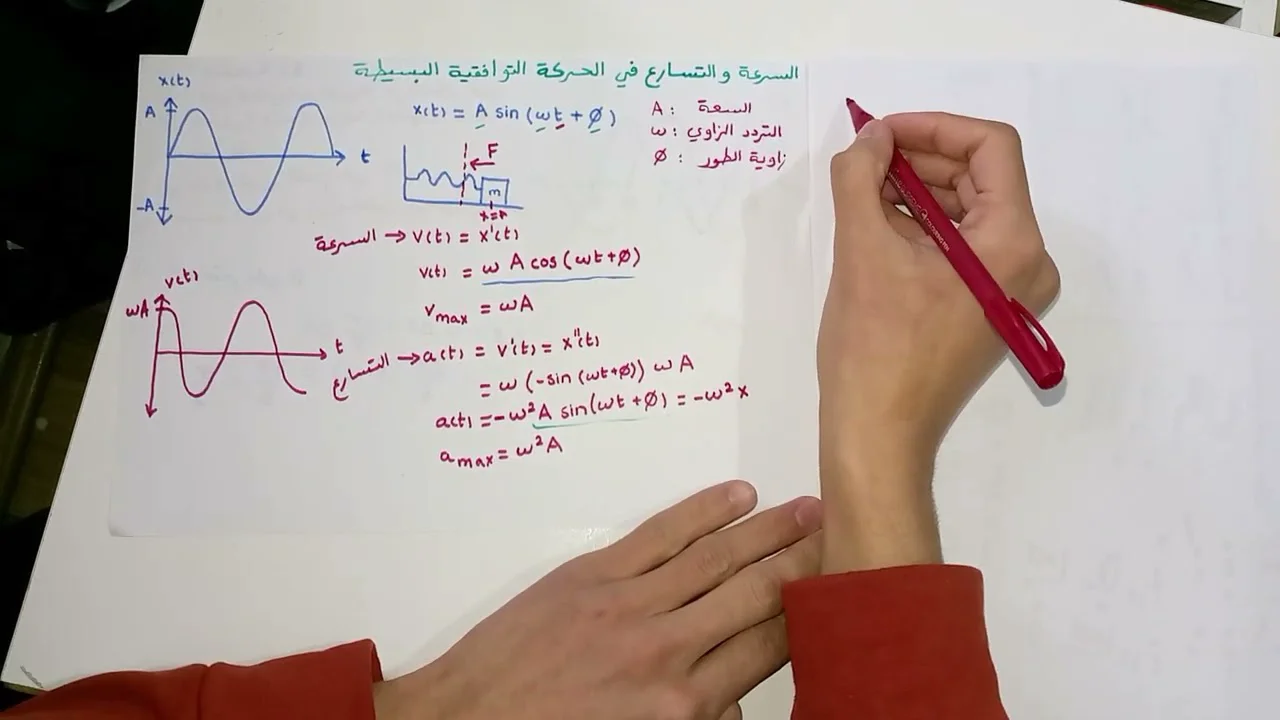 السرعة والتسارع في الحركة التوافقية البسيطة
x(t)
A
-A
t
x(t) = A sin (ωt + ∅)
A : السعة
ω : التردد الزاوي
∅ : زاوية الطور
F
m
x=A
السرعة → v(t) = x'(t)
v(t) = ω A cos (ωt + ∅)
v max = ωA
v(t)
ωA
t
التسارع → a(t) = v'(t) = x''(t)
= ω (-sin (ωt+∅)) ω A
a(t) = -ω² A sin(ωt + ∅) = -ω² x
a max = ω² A